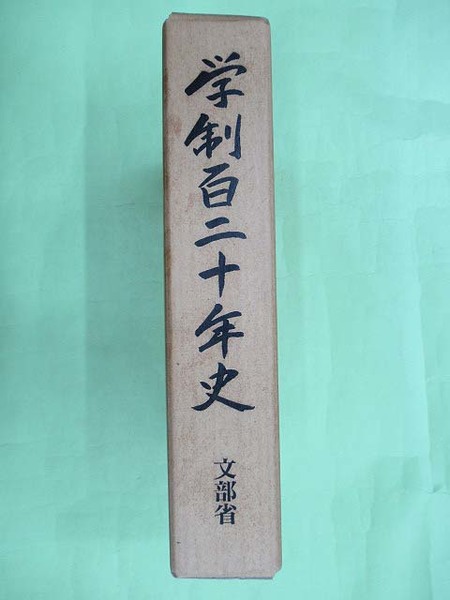 学制百二十年史
文部省